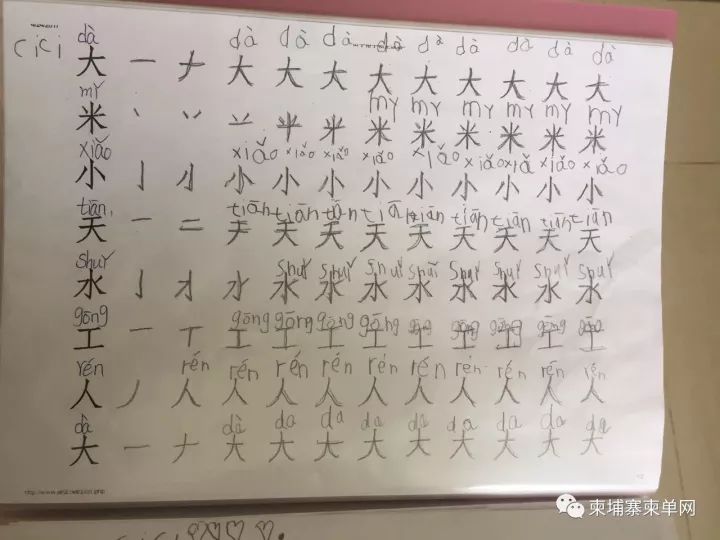 cici dà dà dà dà dà dà dà dà dà dà
大 一 ナ 大 大 大 大 大 大 大 大 大
mǐ my my my my my my
米 丶 丷 米 米 米 米 米 米
xiǎo xiǎo xiǎo xiǎo xiǎo xiǎo xiǎo xiǎ xiǎo xiǎo
小 亅 小 小 小 小 小 小 小 小 小
tiān tiān tiān tiān tiān tiān tiān tiān tiān tiān
天 一 二 天 天 天 天 天 天 天 天
shuǐ shuǐ shuǐ shuǐ shuǐ shuǐ shuǐ shuǐ shuǐ
水 亅 水 水 水 水 水 水 水 水
gōng gōng gōng gōng gōng gōng gōng gōng gōng gōng
工 一 丅 工 工 工 工 工 工 工 工 工
rén rén rén rén rén rén rén rén rén rén rén
人 丿 人 人 人 人 人 人 人 人 人 人
dà dà da da da da da da da da
大 一 ナ 大 大 大 大 大 大 大 大 大
柬埔寨柬单网